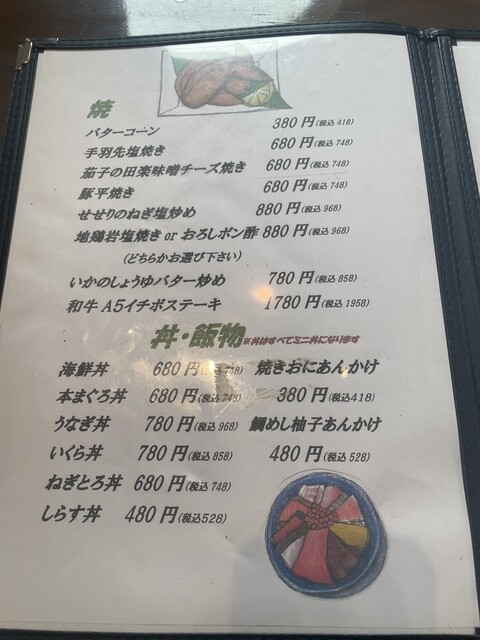 焼
バターコーン 380円(税込418)
手羽先塩焼き 680円(税込748)
茄子の田楽味噌チーズ焼き 680円(税込748)
豚平焼き 680円(税込748)
せせりのねぎ塩炒め 880円(税込968)
地鶏岩塩焼き or おろしポン酢 880円(税込968)
(どちらかお選び下さい)
いかのしょうゆバター炒め 780円(税込858)
和牛A5イチボステーキ 1780円(税込1958)
丼・飯物 ※丼はすべてミニ丼になります
海鮮丼 680円(税込748) 焼きおにあんかけ
本まぐろ丼 680円(税込748) 380円(税込418)
うなぎ丼 780円(税込968) 鯛めし柚子あんかけ
いくら丼 780円(税込858) 480円(税込528)
ねぎとろ丼 680円(税込748)
しらす丼 480円(税込528)